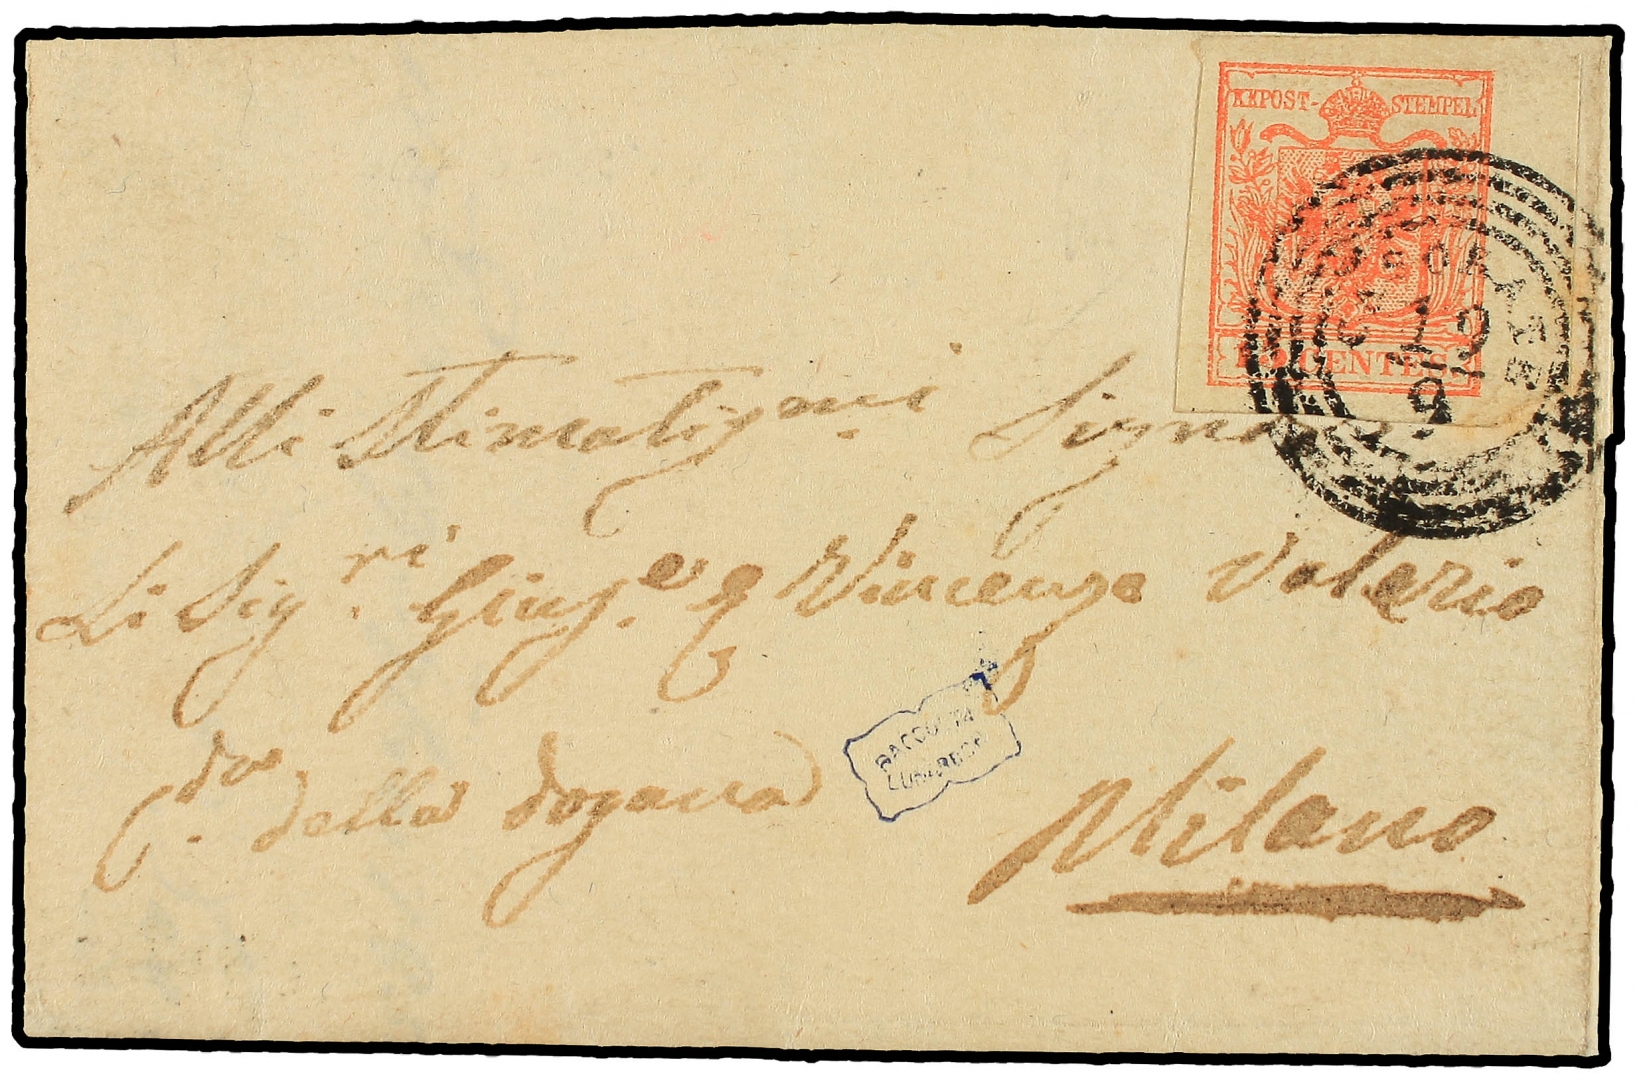 KKPOST-STEMPEL
15 CENTES.
19
9
Alli Stimatiss.mi Signori
Li Sig.ri Gius.e e Vincenzo Valerio
C.da della dogana
Milano
RACCOLTA